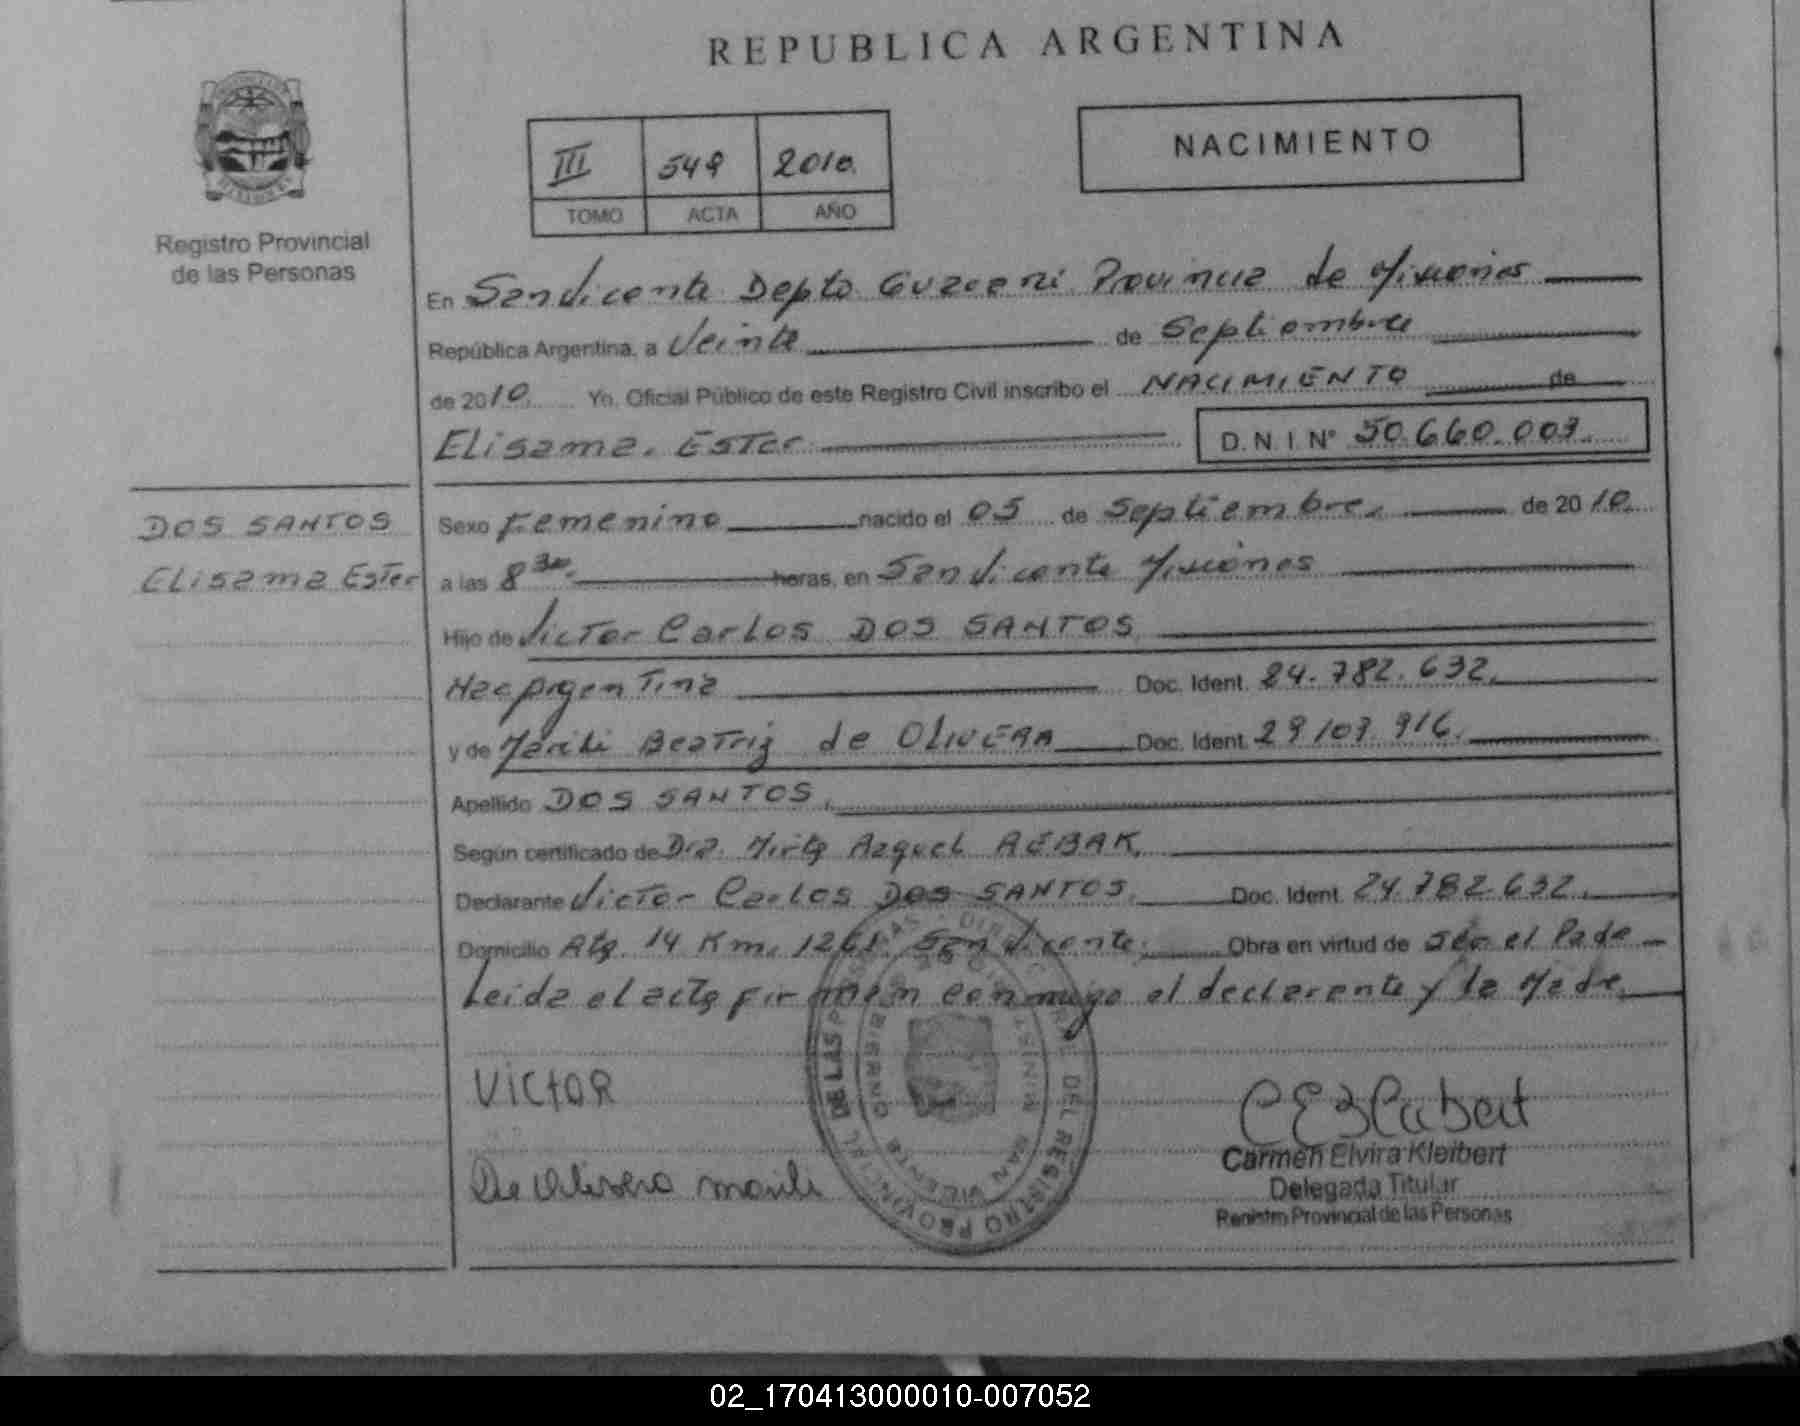 REPUBLICA ARGENTINA
NACIMIENTO
III 549 2010.
TOMO ACTA AÑO
Registro Provincial
de las Personas
En San Vicente Depto Guarani Provincia de Misiones
República Argentina, a Veinte de Septiembre
de 2010. Yo, Oficial Público de este Registro Civil inscribo el NACIMIENTO de
Elisama. Ester D.N.I. N° 50.660.003.
DOS SANTOS
Elisama Ester
Sexo Femenino nacido el 05 de Septiembre. de 2010.
a las 8 30. horas, en San Vicente Misiones
Hijo de Victor Carlos DOS SANTOS
Nac Argentina Doc. Ident. 24.782.632.
y de Marili Beatriz de OLIVERA Doc. Ident. 29.103.916.
Apellido DOS SANTOS.
Según certificado de Dra. Mirta Raquel REBAK.
Declarante Victor Carlos DOS SANTOS. Doc. Ident. 24.782.632.
Domicilio Rta. 14 Km. 1261. San Vicente. Obra en virtud de ser el Padre
Leida el acta firman conmigo el declarante y la Madre.
VICtOR
De Olivera Marili
DIRECCION GRAL DEL REGISTRO PROVINCIAL DE LAS PERSONAS
SAN VICENTE
Carmen Elvira Kleibert
Delegada Titular
Registro Provincial de las Personas
02_170413000010-007052